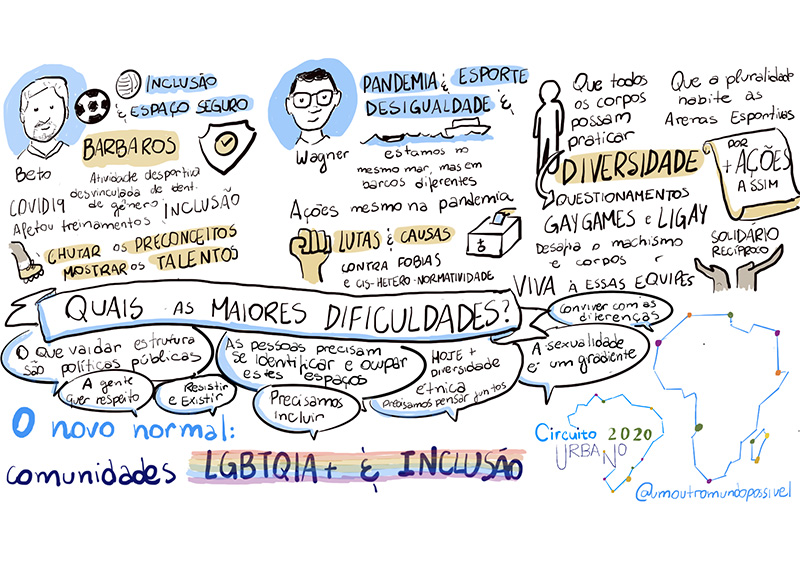 INCLUSÃO
& ESPAÇO SEGURO
BARBAROS
Beto
Atividade desportiva
desvinculada de ident.
de gênero
INCLUSÃO
COVID19
Afetou treinamentos
CHUTAR os PRECONCEITOS
MOSTRAR os TALENTOS
PANDEMIA & ESPORTE
DESIGUALDADE &
Wagner
estamos no
mesmo mar, mas em
barcos diferentes
Ações mesmo na pandemia
LUTAS & CAUSAS
CONTRA FOBIAS
e CIS-HETERO-NORMATIVIDADE
Que todos
os corpos
possam
praticar
Que a pluralidade
habite as
Arenas Esportivas
DIVERSIDADE
POR
+ AÇÕES
ASSIM
QUESTIONAMENTOS
GAYGAMES e LIGAY
Desafia o machismo
e corpos
SOLIDÁRIO
RECÍPROCO
VIVA À ESSAS EQUIPES
QUAIS AS MAIORES DIFICULDADES?
O que vai dar estrutura
são políticas públicas
A gente
quer respeito
Resistir
e Existir
AS pessoas precisam
se identificar e ocupar
estes espaços
Precisamos
incluir
HOJE +
diversidade
étnica
Precisamos pensar juntos
Conviver com as
diferenças
A sexualidade
é um gradiente
O novo normal:
comunidades LGBTQIA+ & INCLUSÃO
Circuito 2020
URBANO
@umoutromundopossivel